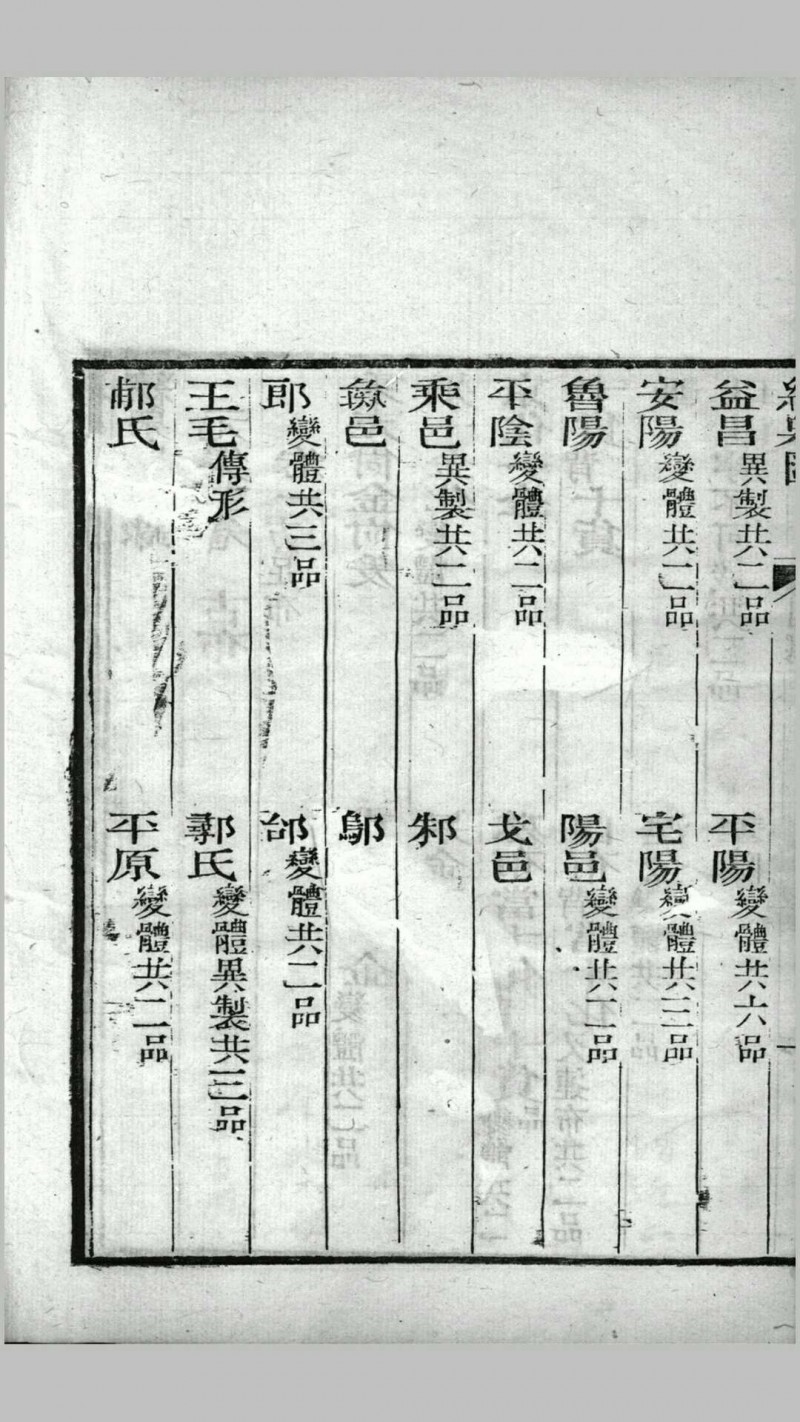 益昌異製共二品
平陽變體共六品
安陽變體共二品
宅陽變體共三品
魯陽
陽邑變體共二品
平陰變體共二品
戈邑
乘邑異製共二品
邾
邑
鄔
郎變體共三品
邰變體共二品
王毛傳形
氏變體異製共三品
氏
平原變體共二品